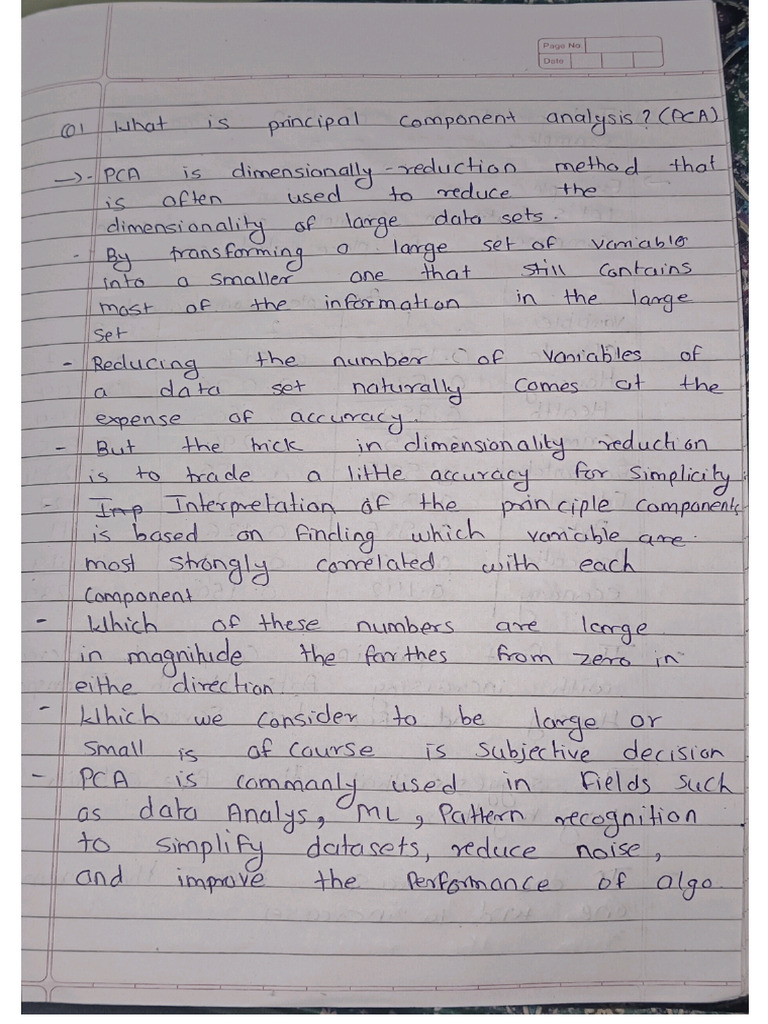 Page No
Date
Q1 What is principal component analysis? (PCA)
→ - PCA is dimensionally-reduction method that
is often used to reduce the
dimensionality of large data sets.
- By transforming a large set of variable
into a smaller one that still contains
most of the information in the large
set
- Reducing the number of variables of
a data set naturally comes at the
expense of accuracy.
- But the trick in dimensionality reduction
is to trade a little accuracy for simplicity
- Imp Interpretation of the principle components
is based on finding which variable are
most strongly correlated with each
component
- Which of these numbers are large
in magnitude the farthes from zero in
eithe direction
- Which we consider to be large or
small is of course is subjective decision
- PCA is commanly used in fields such
as data Analys, ML, Pattern recognition
to simplify datasets, reduce noise,
and improve the Performance of algo